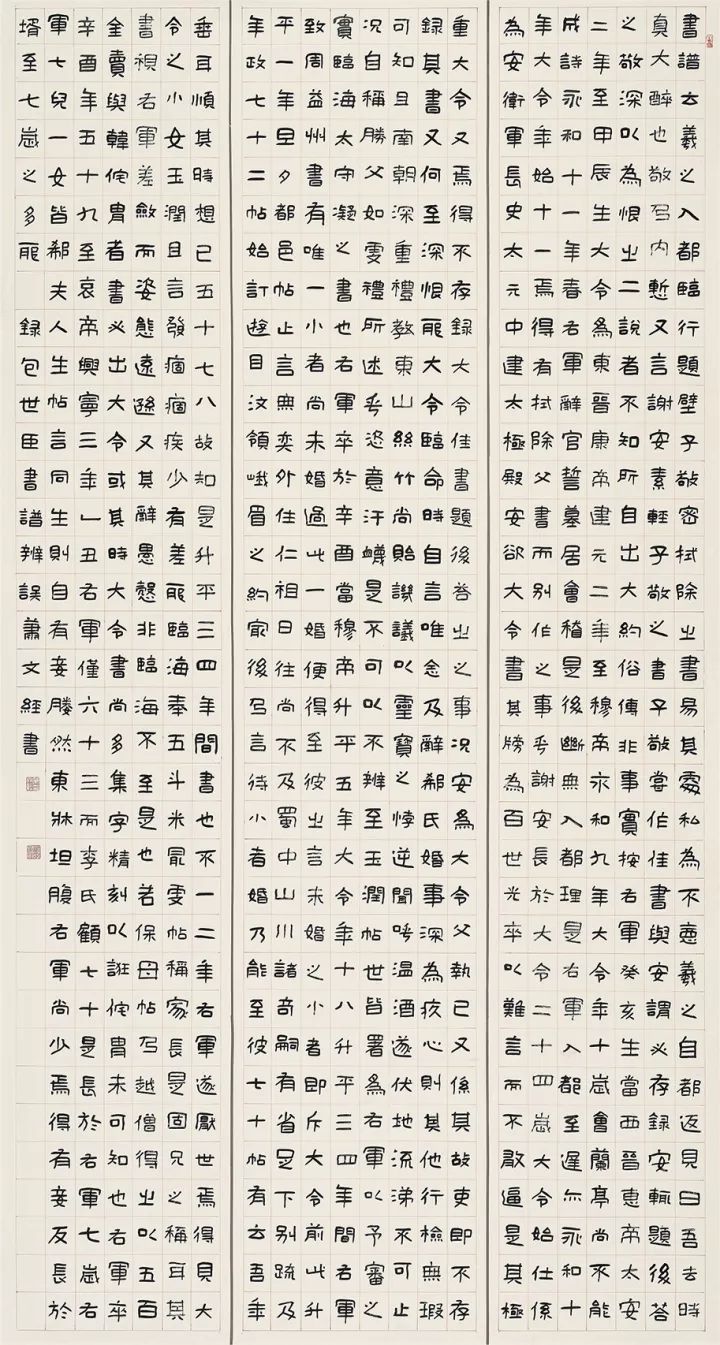 書譜云羲之入都臨行題壁子敬密拭除之書易其處私為不惡羲之自都返見曰吾去時
真大醉也敬乃內慙又言謝安素輕子敬之書子敬嘗作佳書與安謂必存錄安輒題後答
之敬深以為恨出二說者不知所自出大約俗傳非事實按右軍癸亥生當西晉惠帝太安
二年至甲辰生大令為東晉康帝建元二年至穆帝永和九年大令年十歲會蘭亭尚不能
成詩永和十一年春右軍辭官誓墓居會稽是後斷無入都理是右軍入都至遲亦永和十
年大令年始十一焉得有拭除父書而別作之事乎謝安長於大令二十四歲大令始仕係
為安衛軍長史太元中建太極殿安欲大令書其牓為百世光卒以難言而不敢逼是其極
重大令又焉得不存錄大令佳書題後答之之事況安為大令父執已又係其故吏即不存
錄其書又何至深恨耶大令臨命時自言唯念及辭郗氏婚事深為疚心則其他行檢無瑕
可知且南朝深重禮教東山絲竹尚貽譏議以靈寶之悖逆聞呼溫酒遂伏地流涕不可止
況自稱勝父如雯禮所述乎恣意汙衊是不可以不辨至玉潤帖世皆署為右軍以予審之
實臨海太守凝之書也右軍卒於辛酉當穆帝升平五年大令年十八升平三四年間右軍
致周益州書有唯一小者尚未婚過此一婚便得至彼之言未婚之小者即斥大令前此升
平一年旦夕都邑帖止言無奕外住仁祖日往尚不及蜀中山川諸奇嗣有省足下別疏及
年政七十二帖始訂遊目汶領峨眉之約冣後乃言待小者婚乃能至彼七十帖有云吾年
垂耳順其時想已五十七八故知是升平三四年間書也不一二年右軍遂厭世焉得見大
令之小女玉潤且言發痼痼疾少有差耶臨海奉五斗米冣雯帖稱家長是固兄之稱耳其
書視右軍差斂而姿態遠遜又其辭愚懟非臨海不至是也若保母帖乃越僧得之以五百
金賣與韓侂冑者書必出大令或其時大令書尚多集字精刻以誑侂冑未可知也右軍卒
辛酉年五十九至哀帝興寧三年乙丑右軍僅六十三而李氏顧七十是長於右軍七歲右
軍七兒一女皆郗夫人生帖言同生則自有妾媵然東牀坦腹右軍尚少焉得有妾反長於
壻至七歲之多耶 錄包世臣書譜辨誤蕭文經書